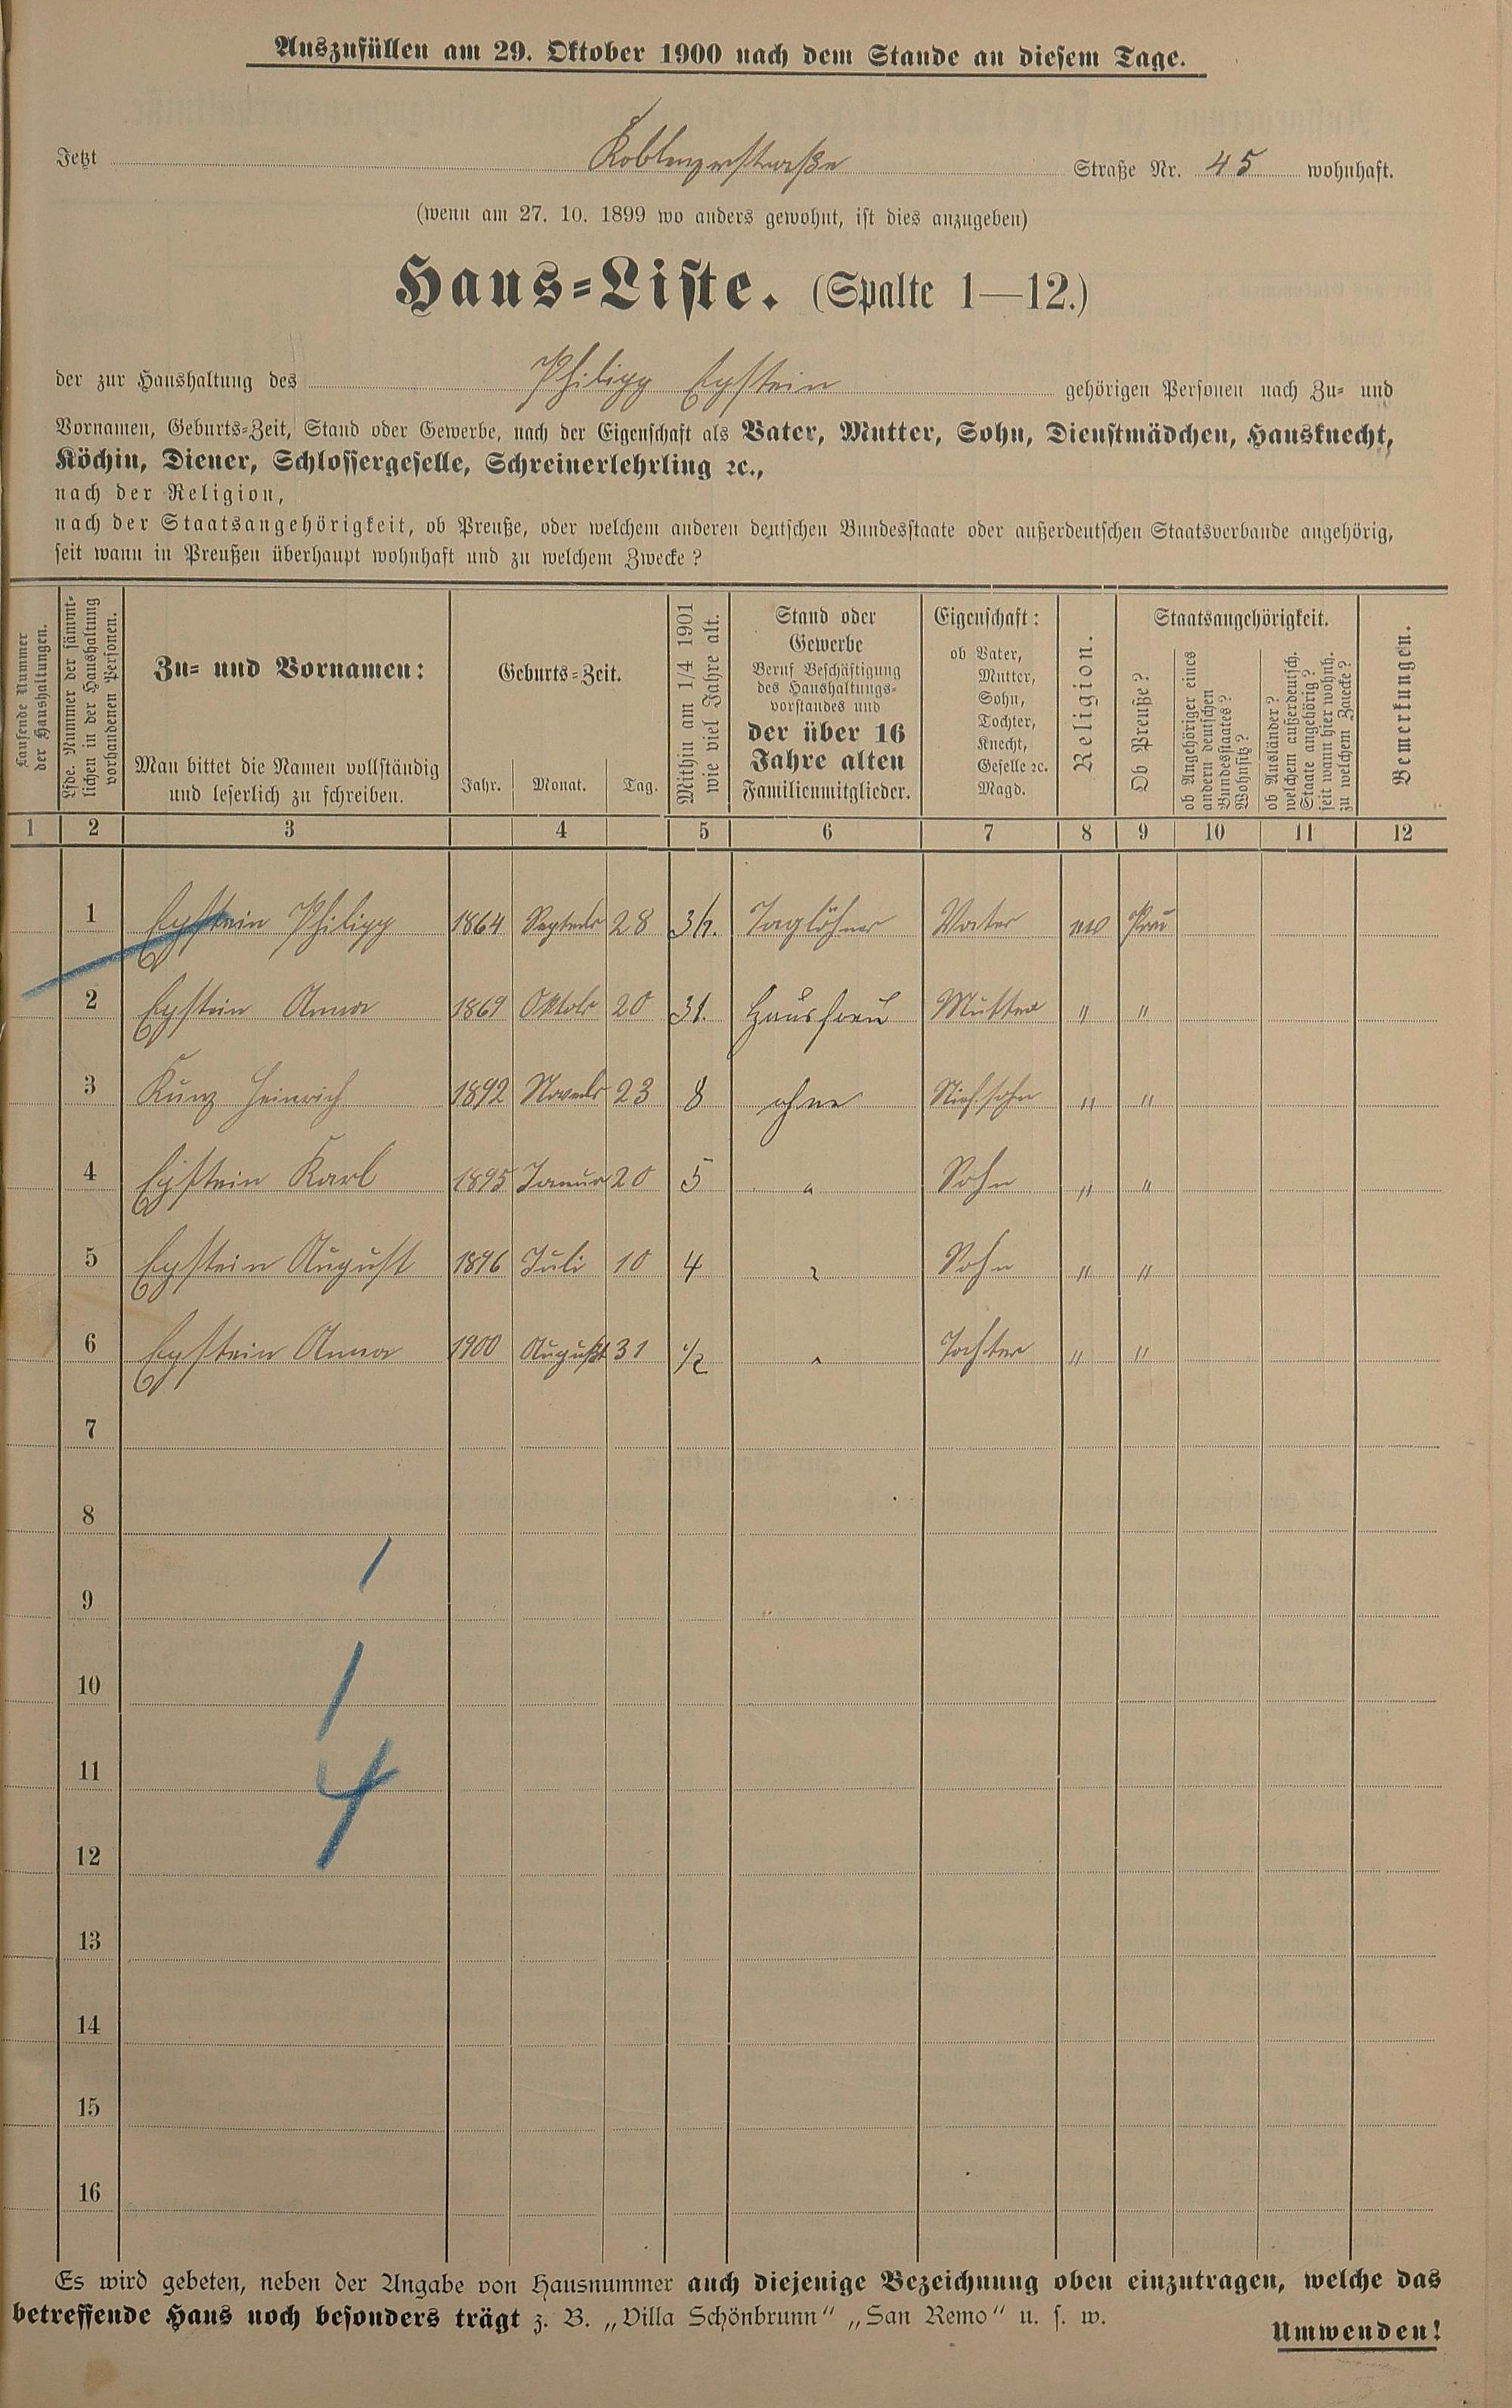 Auszufüllen am 29. Oktober 1900 nach dem Stande an diesem Tage.
Jetzt Koblenzerstraße Straße Nr. 45 wohnhaft.
(wenn am 27. 10. 1899 wo anders gewohnt, ist dies anzugeben)
Haus-Liste. (Spalte 1—12.)
der zur Haushaltung des Philipp Epstein gehörigen Personen nach Zu- und
Vornamen, Geburts-Zeit, Stand oder Gewerbe, nach der Eigenschaft als Vater, Mutter, Sohn, Dienstmädchen, Hausknecht,
Köchin, Diener, Schlossergeselle, Schreinerlehrling ꝛc.,
nach der Religion,
nach der Staatsangehörigkeit, ob Preuße, oder welchem anderen deutschen Bundesstaate oder außerdeutschen Staatsverbande angehörig,
seit wann in Preußen überhaupt wohnhaft und zu welchem Zwecke?
Laufende Nummer
der Haushaltungen.
Lfde. Nummer der sämmt-
lichen in der Haushaltung
vorhandenen Personen.
Zu- und Vornamen:
Man bittet die Namen vollständig
und leserlich zu schreiben.
Geburts-Zeit.
Jahr. Monat. Tag.
Mithin am 1/4 1901
wie viel Jahre alt.
Stand oder
Gewerbe
Beruf Beschäftigung
des Haushaltungs-
vorstandes und
der über 16
Jahre alten
Familienmitglieder.
Eigenschaft:
ob Vater,
Mutter,
Sohn,
Tochter,
Knecht,
Geselle ꝛc.
Magd.
Religion.
Staatsangehörigkeit.
Ob Preuße?
ob Angehöriger eines
andern deutschen
Bundesstaates?
Wohnsitz?
ob Ausländer?
welchem außerdeutsch.
Staate angehörig?
seit wann hier wohnh.
zu welchem Zwecke?
Bemerkungen.
1 2 3 4 5 6 7 8 9 10 11 12
1 Epstein Philipp 1864 Septembr 28 Taglöhner Vater ev Preu
2 Epstein Anna 1869 Oktobr 20 31. Hausfrau Mutter " "
3 Kunz Heinrich 1892 Novembr 23 8 ohne " "
4 Epstein Karl 1895 Januar 20 5 " Sohn " "
5 Epstein August 1896 Juli 10 4 " Sohn " "
6 Epstein Anna 1900 August 31 1/2 " Tochter " "
7
8
9
10
11
12
13
14
15
16
1
1
4
Es wird gebeten, neben der Angabe von Hausnummer auch diejenige Bezeichnung oben einzutragen, welche das
betreffende Haus noch besonders trägt z. B. „Villa Schönbrunn“ „San Remo“ u. s. w.
Umwenden!